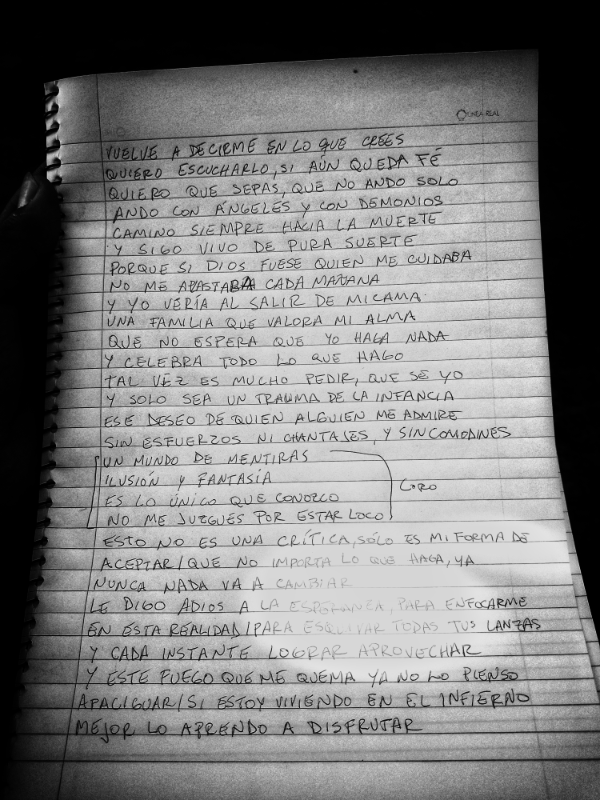 LINEA REAL
VUELVE A DECIRME EN LO QUE CREES
QUIERO ESCUCHARLO, SI AÚN QUEDA FÉ
QUIERO QUE SEPAS, QUE NO ANDO SOLO
ANDO CON ÁNGELES Y CON DEMONIOS
CAMINO SIEMPRE HACIA LA MUERTE
Y SIGO VIVO DE PURA SUERTE
PORQUE SI DIOS FUESE QUIEN ME CUIDABA
NO ME APASTABA CADA MAÑANA
Y YO VERÍA AL SALIR DE MI CAMA
UNA FAMILIA QUE VALORA MI ALMA
QUE NO ESPERA QUE YO HAGA NADA
Y CELEBRA TODO LO QUE HAGO
TAL VÉZ ES MUCHO PEDIR, QUE SÉ YO
Y SOLO SEA UN TRAUMA DE LA INFANCIA
ESE DESEO DE QUIEN ALGUIEN ME ADMIRE
SIN ESFUERZOS NI CHANTAJES, Y SIN COMODINES
UN MUNDO DE MENTIRAS
ILUSIÓN Y FANTASÍA
ES LO ÚNICO QUE CONOZCO
NO ME JUZGUES POR ESTAR LOCO
CORO
ESTO NO ES UNA CRÍTICA, SÓLO ES MI FORMA DE
ACEPTAR/QUE NO IMPORTA LO QUE HAGA, YA
NUNCA NADA VA A CAMBIAR
LE DIGO ADIOS A LA ESPERANZA, PARA ENFOCARME
EN ESTA REALIDAD/PARA ESQUIVAR TODAS TUS LANZAS
Y CADA INSTANTE LOGRAR APROVECHAR
Y ESTE FUEGO QUE ME QUEMA YA NO LO PIENSO
APACIGUAR/SI ESTOY VIVIENDO EN EL INFIERNO
MEJOR LO APRENDO A DISFRUTAR